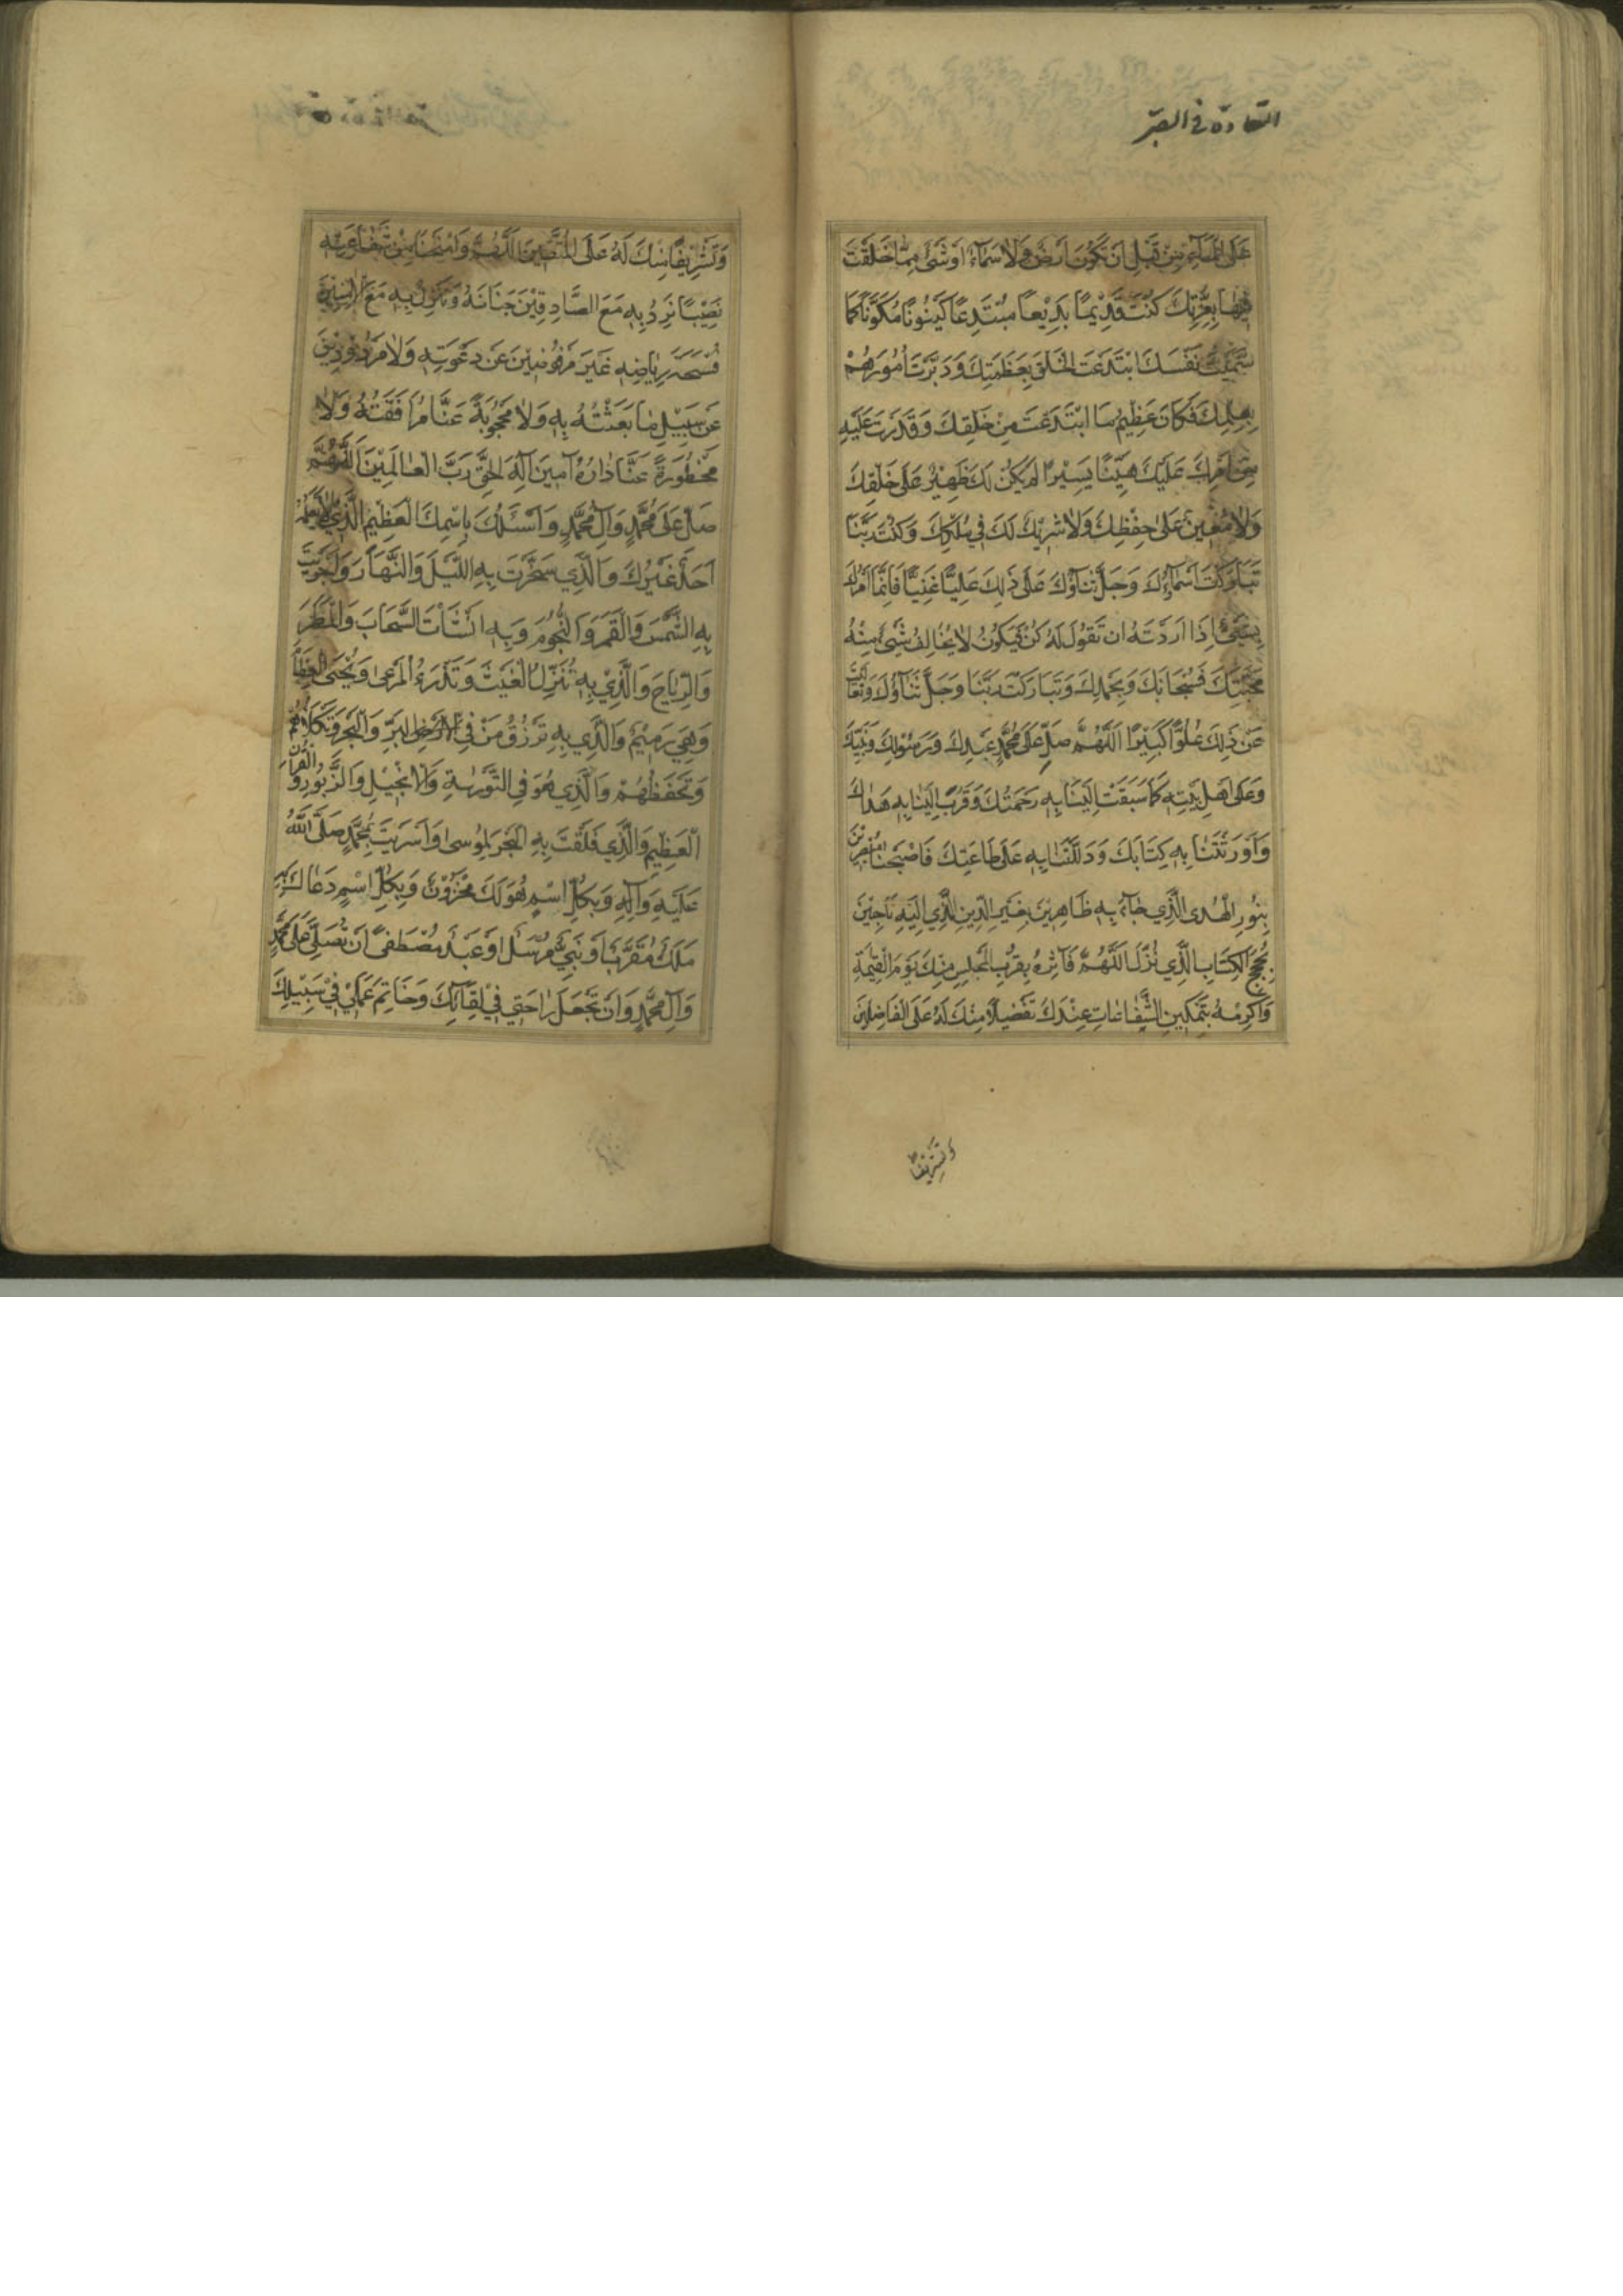 السعادة في الصبر
عَلَى المَآءِ مِنْ قَبْلِ اَنْ تَكُونَ اَرْضٌ وَلا سَمَاءٌ اَوْ شَيْءٌ مِمَّا خَلَقْتَ
فِيهَا بِعِزَّتِكَ كُنْتَ قَدِيْمًا بَدِيْعًا مُبْتَدِعًا كَيْنُونًا مُكَوِّنًا كَمَا
سَمَّيْتَ نَفْسَكَ ابْتَدَعْتَ الْخَلْقَ بِعَظَمَتِكَ وَدَبَّرْتَ اُمُورَهُمْ
بِعِلْمِكَ فَكَانَ عَظِيْمُ مَا ابْتَدَعْتَ مِنْ خَلْقِكَ وَقَدَّرْتَ عَلَيْهِ
مِنْ اَمْرِكَ عَلَيْكَ هَيِّنًا يَسِيْرًا لَمْ يَكُنْ لَكَ ظَهِيْرٌ عَلَى خَلْقِكَ
وَلا مُعِيْنٌ عَلَى حِفْظِكَ وَلا شَرِيْكٌ لَكَ فِي مُلْكِكَ وَكُنْتَ رَبَّنَا
تَبَارَكَتْ اَسْمَاؤُكَ وَجَلَّ ثَنَاؤُكَ عَلَى ذَلِكَ عَلِيًّا غَنِيًّا فَاِنَّمَا اَمْرُكَ
لِشَيْءٍ اِذَا اَرَدْتَهُ اَنْ تَقُولَ لَهُ كُنْ فَيَكُونُ لا يُخَالِفُ شَيْءٌ مِنْهُ
مَحَبَّتَكَ فَسُبْحَانَكَ وَبِحَمْدِكَ وَتَبَارَكْتَ رَبَّنَا وَجَلَّ ثَنَاؤُكَ وَتَعَالَيْتَ
عَنْ ذَلِكَ عُلُوًّا كَبِيْرًا اَللَّهُمَّ صَلِّ عَلَى مُحَمَّدٍ عَبْدِكَ وَرَسُولِكَ وَنَبِيِّكَ
وَعَلَى اَهْلِ بَيْتِهِ كَمَا سَبَقَتْ اِلَيْنَا بِهِ رَحْمَتُكَ وَقَرُبَ اِلَيْنَا بِهِ هُدَاكَ
وَاَوْرَثْتَنَا بِهِ كِتَابَكَ وَدَلَلْتَنَا بِهِ عَلَى طَاعَتِكَ فَاَصْبَحْنَا مُبْصِرِيْنَ
بِنُورِ الْهُدَى الَّذِي جَاءَ بِهِ ظَاهِرِيْنَ بِعِزِّ الدِّينِ الَّذِي اِلَيْهِ نَاجِيْنَ
بِحُجَجِ الْكِتَابِ الَّذِي نُزِّلَ اَللَّهُمَّ فَآثِرْهُ بِقُرْبِ الْمَجْلِسِ مِنْكَ يَوْمَ الْقِيمَةِ
وَاَكْرِمْهُ بِتَمْكِينِ الشَّفَاعَاتِ عِنْدَكَ تَفْضِيلًا مِنْكَ لَهُ عَلَى الْفَاضِلِينَ
وَتَشْرِيفًا
وَتَشْرِيْفًا مِنْكَ لَهُ عَلَى الْمُتَّقِينَ اَللَّهُمَّ وَامْنَحْنَا مِنْ شَفَاعَتِهِ
نَصِيْبًا نَرِدُ بِهِ مَعَ الصَّادِقِيْنَ جِنَانَهُ وَنَنْزِلُ بِهِ مَعَ الْآمِنِيْنَ
فُسْحَةَ رِيَاضِهِ غَيْرَ مَرْفُوضِيْنَ عَنْ دَعْوَتِهِ وَلا مَرْدُودِيْنَ
عَنْ سَبِيْلِ مَا بَعَثْتَهُ بِهِ وَلا مَحْجُوبَةً عَنَّا مُرَافَقَتُهُ وَلا
مَحْظُورَةً عَنَّا دَارُهُ آمِيْنَ اِلَهَ الْحَقِّ رَبَّ الْعَالَمِيْنَ اَللَّهُمَّ
صَلِّ عَلَى مُحَمَّدٍ وَآلِ مُحَمَّدٍ وَاَسْئَلُكَ بِاِسْمِكَ الْعَظِيْمِ الَّذِي لا يَعْلَمُهُ
اَحَدٌ غَيْرُكَ وَالَّذِي سَخَّرْتَ بِهِ اللَّيْلَ وَالنَّهَارَ وَاَجْرَيْتَ
بِهِ الشَّمْسَ وَالْقَمَرَ وَالنُّجُومَ وَبِهِ اَنْشَأْتَ السَّحَابَ وَالْمَطَرَ
وَالرِّيَاحَ وَالَّذِيْ بِهِ تُنَزِّلُ الْغَيْثَ وَتَذْرَءُ الْمَرْعَى وَتُحْيِي الْعِظَامَ
وَهِيَ رَمِيْمٌ وَالَّذِي بِهِ تَرْزُقُ مَنْ فِي الْاَرْضِ الْبَرِّ وَالْبَحْرِ وَتَكْلَأُهُمْ
وَتَحْفَظُهُمْ وَالَّذِي هُوَ فِي التَّوْرٰيةِ وَالْاِنْجِيْلِ وَالزَّبُورِ وَالْقُرْآنِ
الْعَظِيْمِ وَالَّذِي فَلَقْتَ بِهِ الْبَحْرَ لِمُوسَى وَاَسْرَيْتَ بِمُحَمَّدٍ صَلَّى اللَّهُ
عَلَيْهِ وَآلِهِ وَبِكُلِّ اسْمٍ هُوَ لَكَ مَخْزُونٌ وَبِكُلِّ اسْمٍ دَعَاكَ بِهِ
مَلَكٌ مُقَرَّبٌ اَوْ نَبِيٌّ مُرْسَلٌ اَوْ عَبْدٌ مُصْطَفًى اَنْ تُصَلِّيَ عَلَى مُحَمَّدٍ
وَآلِ مُحَمَّدٍ وَاَنْ تَجْعَلَ رَاحَتِي فِيْ لِقَائِكَ وَخَاتِمَ عَمَلِيْ فِيْ سَبِيْلِكَ